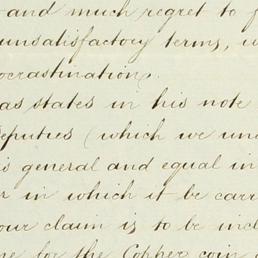 and much regret to f
unsatisfactory terms, u
ocrastination.
as states in his note
Deputies (which we un
is general and equal in
r in which it be carr
our claim is to be incl
me for the Copper coin